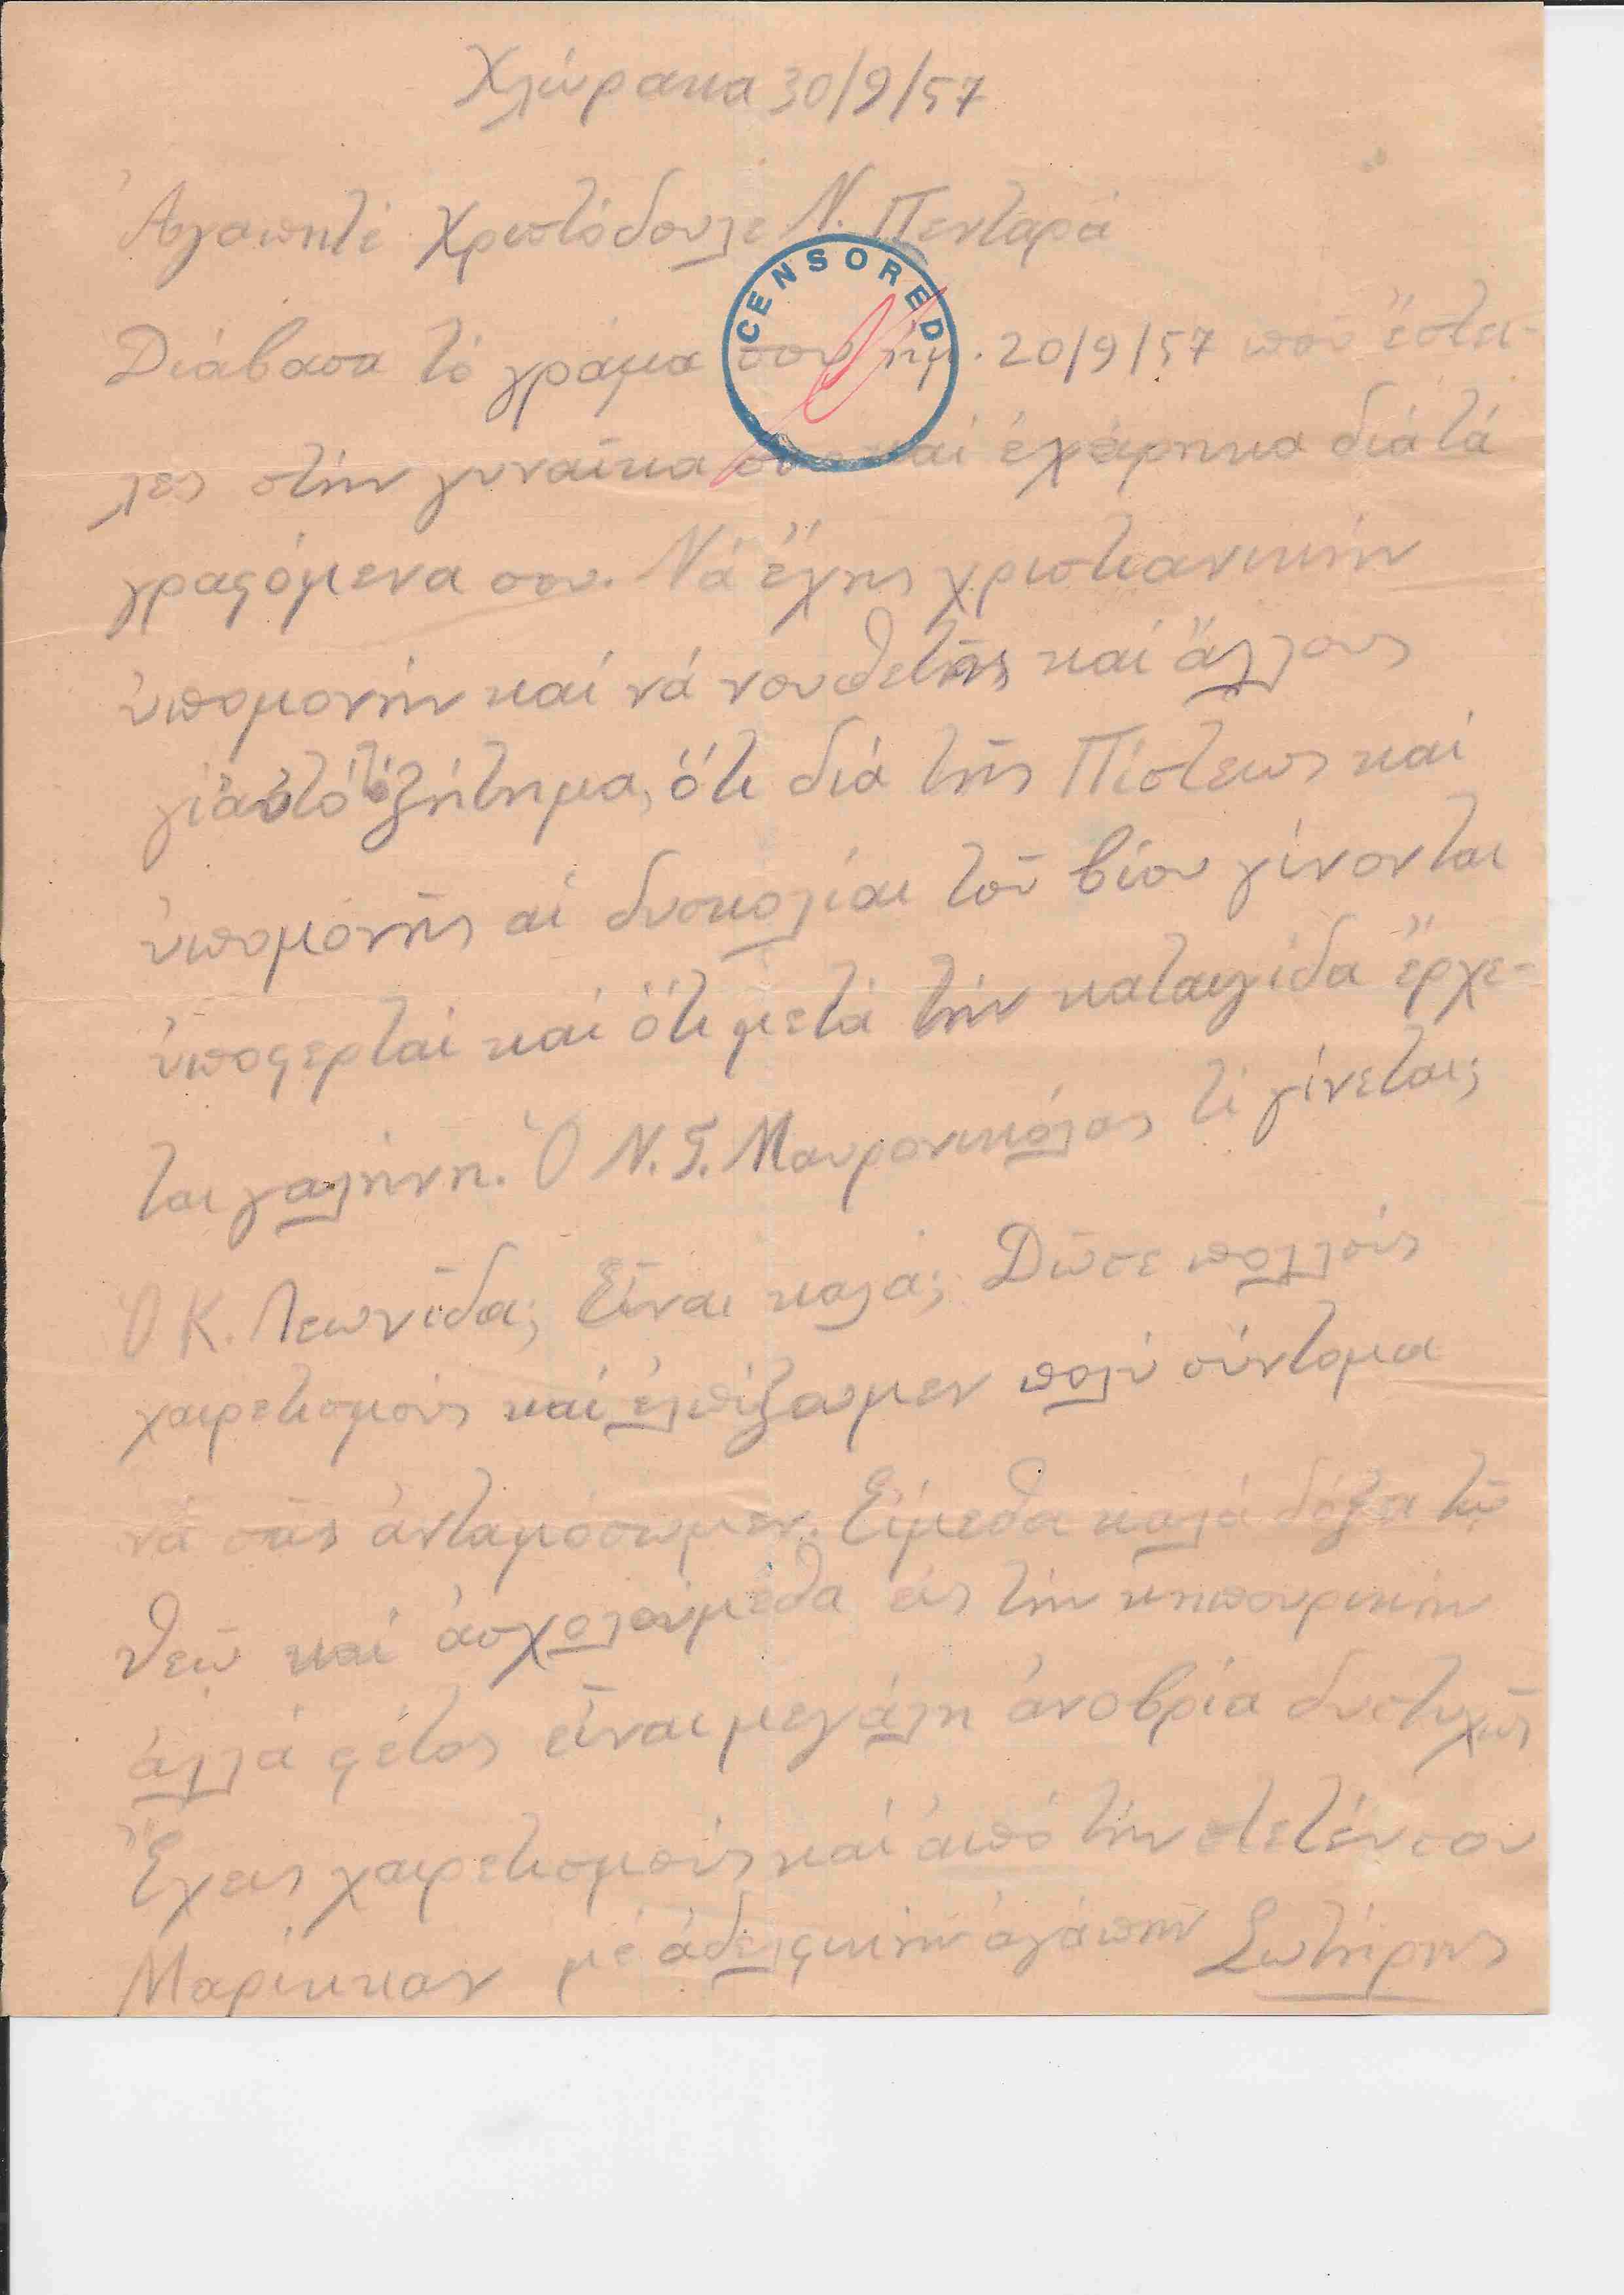 Χλώρακα 30/9/57
Ἀγαπητέ Χριστόδουλε Ν. Πενταρά
CENSORED
Διάβασα τό γράμα σου ἡμ. 20/9/57 πού ἔστει-
λες στήν γυναῖκα σου καί ἐχάρηκα διά τά
γραφόμενα σου. Νά ἔχης χριστιανικήν
ὑπομονήν καί νά νουθετῆς καί ἄλλους
γιαὐτό τό ζήτημα, ὅτι διά τῆς Πίστεως καί
ὑπομονῆς αἱ δυσκολίαι τοῦ βίου γίνονται
ὑποφερταί καί ὅτι μετά τήν καταιγίδα ἔρχε-
ται γαλήνη. Ὁ Ν. Γ. Μαυρονικόλας τί γίνεται;
Ὁ Κ. Λεωνῖδα; Εἶναι καλά; Δῶσε πολλούς
χαιρετισμούς καί ἐλπίζωμεν πολύ σύντομα
νά σᾶς ἀνταμόσωμεν. Εἴμεθα καλά δόξα τῷ
θεῷ καί ἀσχολούμεθα εἰς τήν κηπουρικήν
ἀλλά φέτος εἶναι μεγάλη ἀνοβρία δυστυχῶς
Ἔχεις χαιρετισμούς καί ἀπό τήν στετέν σου
Μαρίκκαν μέ ἀδελφικήν ἀγάπην Σωτήρης